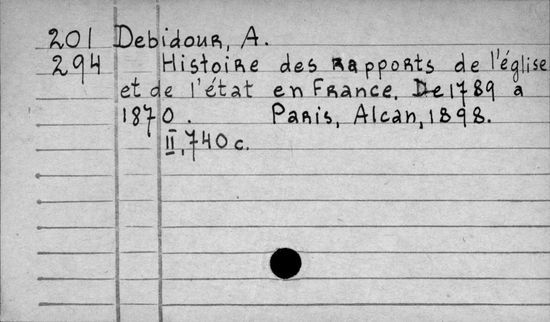 201 Debidour, A.
294 Histoire des rapports de l'église
et de l'état en France. De 1789 a
1870. Paris, Alcan, 1898.
II, 740 c.